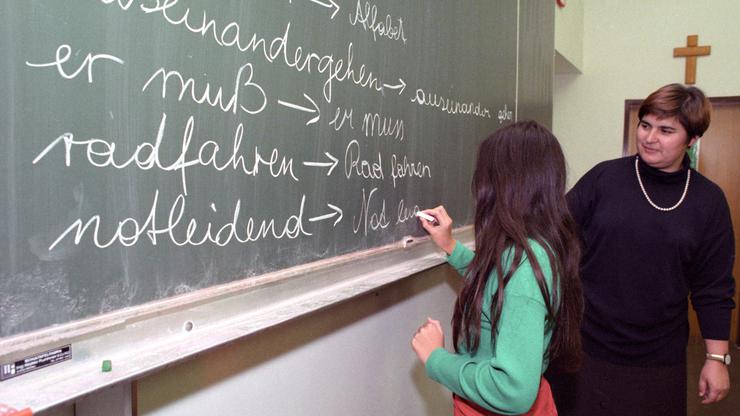 → Alfabet
auseinandergehen → auseinander gehen
er muß → er muss
radfahren → Rad fahren
notleidend → Not lei